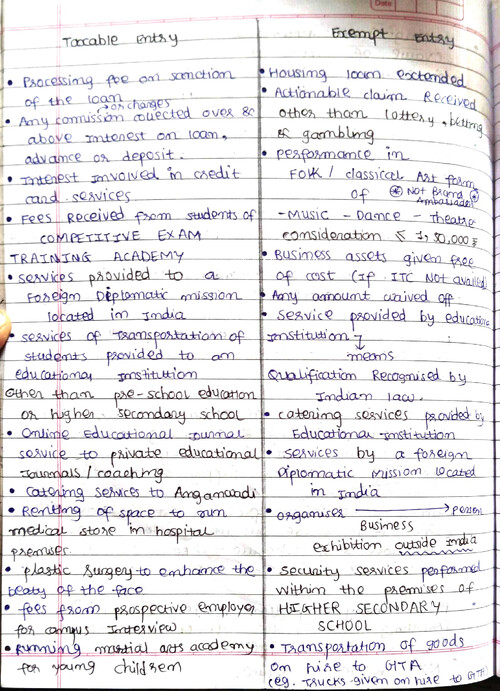 Date
Taxable Entry
• Processing fee on sanction
of the loan
or charges
• Any comission collected over &
above interest on loan,
advance or deposit.
• Interest involved in credit
card services
• Fees Received from students of
COMPETITIVE EXAM
TRAINING ACADEMY
• services provided to a
Foreign Diplomatic mission
located in India
• services of Transportation of
students provided to an
educational institution
other than pre-school education
or higher secondary school
• Online Educational Journal
service to private educational
Journals / coaching
• Catering services to Anganwadi
• Renting of space to run
medical store in hospital
premises
• plastic surgery to enhance the
beaty of the face
• fees from prospective employer
for campus Interview.
• Running martial arts academy
for young children
Exempt Entry
• Housing loan extended
• Actionable claim Received
other than lottery, betting
& gambling
• performance in
FOlk / classical Art form
of * Not Brand Ambassador *
- Music - Dance - Theatre
consideration ≤ 1,50,000 ₹
• Business assets given free
of cost (If ITC Not availed)
• Any amount waived off
• service provided by educational
institution
means
Qualification Recognised by
Indian law.
• catering services provided by
Educational Institution
• services by a foreign
Diplomatic mission located
in India
• organiser → person
Business
exhibition outside India
• security services performed
within the premises of
HIGHER SECONDARY
SCHOOL
• Transportation of goods
on hire to GTA
(eg. Trucks given on hire to GTA)